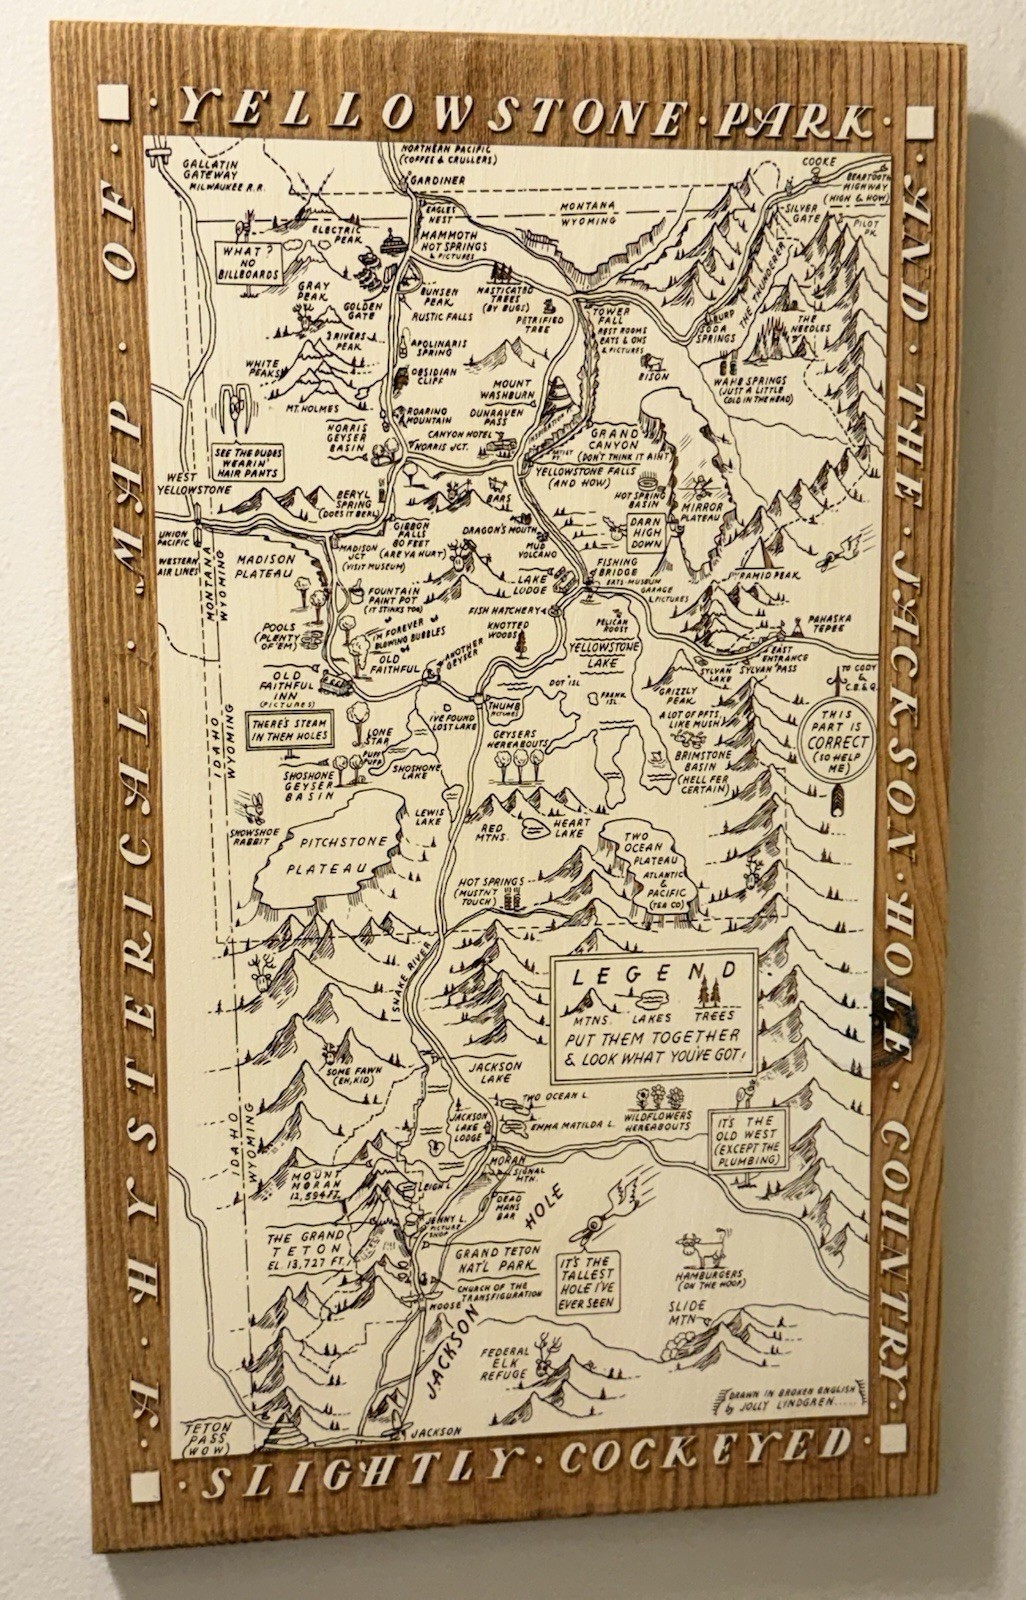 A · HYSTERICAL · MAP · OF ·
· YELLOWSTONE · PARK ·
· AND · THE · JACKSON · HOLE · COUNTRY ·
· SLIGHTLY · COCKEYED ·
GALLATIN
GATEWAY
MILWAUKEE R.R.
NORTHERN PACIFIC
(COFFEE & CRULLERS)
GARDINER
COOKE
BEARTOOTH
HIGHWAY
(HIGH & HOW)
MONTANA
WYOMING
SILVER
GATE
PILOT
PK.
EAGLES
NEST
ELECTRIC
PEAK
MAMMOTH
HOT SPRINGS
& PICTURES
WHAT?
NO
BILLBOARDS
THE THUNDERER
GRAY
PEAK
GOLDEN
GATE
BUNSEN
PEAK
RUSTIC FALLS
MASTICATED
TREES
(BY BUGS)
PETRIFIED
TREE
TOWER
FALL
REST ROOMS
EATS & OHS
& PICTURES
BURP
SODA
SPRINGS
THE
NEEDLES
3 RIVERS
PEAK
APOLINARIS
SPRING
WHITE
PEAKS
OBSIDIAN
CLIFF
BISON
WAHB SPRINGS
(JUST A LITTLE
COLD IN THE HEAD)
MT. HOLMES
MOUNT
WASHBURN
DUNRAVEN
PASS
ROARING
MOUNTAIN
NORRIS
GEYSER
BASIN
CANYON HOTEL
NORRIS JCT.
INSPIRATION
GRAND
CANYON
(DON'T THINK IT AIN'T)
SEE THE DUDES
WEARIN'
HAIR PANTS
YELLOWSTONE FALLS
(AND HOW)
WEST
YELLOWSTONE
BERYL
SPRING
(DOES IT BERL)
BARS
HOT SPRING
BASIN
MIRROR
PLATEAU
UNION
PACIFIC
WESTERN
AIR LINES
GIBBON
FALLS
80 FEET
(ARE YA HURT)
DRAGON'S MOUTH
MUD
VOLCANO
DARN
HIGH
DOWN
MADISON
PLATEAU
MADISON
JCT
(VISIT MUSEUM)
MONTANA
WYOMING
LAKE
LODGE
FISHING
BRIDGE
EATS-MUSEUM
GARAGE
& PICTURES
PYRAMID PEAK
FOUNTAIN
PAINT POT
(IT STINKS TOO)
FISH HATCHERY
PELICAN
ROOST
PAHASKA
TEPEE
POOLS
(PLENTY
OF 'EM)
I'M FOREVER
BLOWING BUBBLES
KNOTTED
WOODS
YELLOWSTONE
LAKE
EAST
ENTRANCE
SYLVAN
LAKE
SYLVAN PASS
OLD
FAITHFUL
ANOTHER
GEYSER
TO CODY
&
C.B.& Q.
OLD
FAITHFUL
INN
(PICTURES)
DOT ISL.
FRANK
ISL.
GRIZZLY
PEAK
THUMB
PICTURES
THERE'S STEAM
IN THEM HOLES
LONE
STAR
I'VE FOUND
LOST LAKE
GEYSERS
HEREABOUTS
A LOT OF PFTS
LIKE MUSH
THIS
PART IS
CORRECT
(SO HELP
ME)
BRIMSTONE
BASIN
(HELL FER
CERTAIN)
PUFF
PUFF
SHOSHONE
GEYSER
BASIN
SHOSHONE
LAKE
IDAHO
WYOMING
SNOWSHOE
RABBIT
PITCHSTONE
PLATEAU
LEWIS
LAKE
RED
MTNS.
HEART
LAKE
TWO
OCEAN
PLATEAU
ATLANTIC
&
PACIFIC
(TEA CO)
HOT SPRINGS
(MUSTN'T
TOUCH)
SNAKE RIVER
LEGEND
MTNS. LAKES TREES
PUT THEM TOGETHER
& LOOK WHAT YOU'VE GOT!
SOME FAWN
(EH, KID)
JACKSON
LAKE
TWO OCEAN L.
EMMA MATILDA L.
JACKSON
LAKE
LODGE
WILDFLOWERS
HEREABOUTS
IT'S THE
OLD WEST
(EXCEPT THE
PLUMBING)
IDAHO
WYOMING
MORAN
SIGNAL
MTN.
MOUNT
MORAN
12,594 FT.
LEIGH L.
DEAD
MANS
BAR
JENNY L.
PICTURE
SHOP
THE GRAND
TETON
EL. 13,727 FT.
GRAND TETON
NAT'L PARK
JACKSON HOLE
IT'S THE
TALLEST
HOLE I'VE
EVER SEEN
HAMBURGERS
(ON THE HOOF)
CHURCH OF THE
TRANSFIGURATION
MOOSE
SLIDE
MTN
FEDERAL
ELK
REFUGE
DRAWN IN BROKEN ENGLISH
by JOLLY LINDGREN.....
TETON
PASS
(WOW)
JACKSON